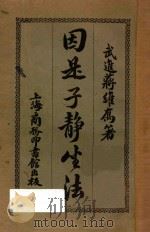 武進蔣維喬著
因是子靜坐法
上海商務印書館出板